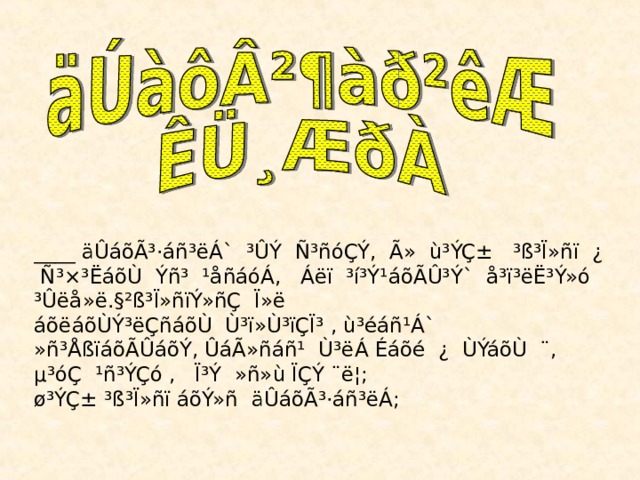 äÚàôÂ²¶àð²êÆ
ÊÜ¸ÆðÀ
____ äÛáõÃ³·áñ³ëÁ` ³ÛÝ Ñ³ñóÇÝ, Ã» ù³ÝÇ± ³ß³Ï»ñï ¿
Ñ³×³ËáõÙ Ýñ³ ¹åñáóÁ, Áëï ³í³Ý¹áõÃÛ³Ý` å³ï³ëË³Ý»ó
³Ûëå»ë.§²ß³Ï»ñïÝ»ñÇ Ï»ë
áõëáõÙÝ³ëÇñáõÙ Ù³ï»Ù³ïÇÏ³ , ù³éáñ¹Á`
»ñ³ÅßïáõÃÛáõÝ, ÛáÃ»ñáñ¹ Ù³ëÁ Éáõé ¿ ÙÝáõÙ ¨,
µ³óÇ ¹ñ³ÝÇó , Ï³Ý »ñ»ù ÏÇÝ ¨ë¦;
ø³ÝÇ± ³ß³Ï»ñï áõÝ»ñ äÛáõÃ³·áñ³ëÁ;